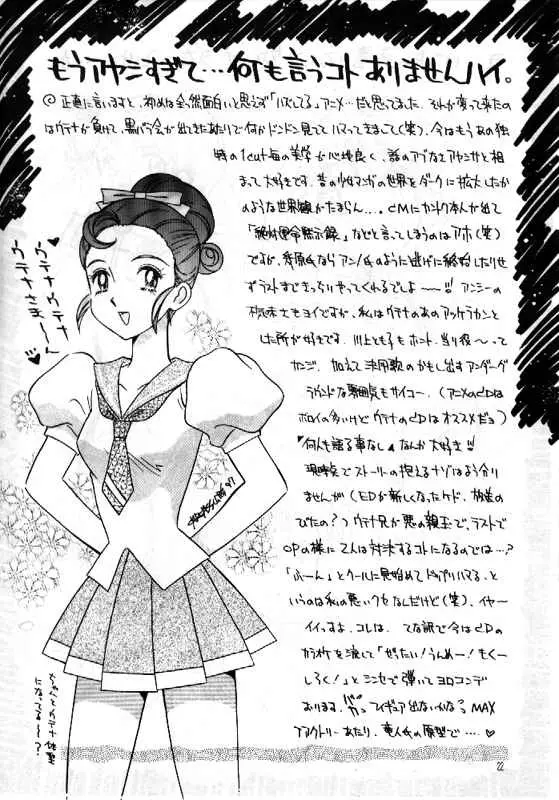 もうアヤシすぎて…何も言うコトありませんハイ。
◎正直に言いますと、初めは全然面白いと思えず「ハズしてる」アニメ…だと思ってました。それが変って来たの
はウテナが負けて、黒バラ会が出てきたあたりで何かドンドン見ててハマってきまして(笑)、今はもうあの独
特の1cut毎の美学が心地良く、話のアブなさアヤシサと相
まって大好きです。昔の少女マンガの世界をダークに拡大したか
のような世界観がたまらん…。CMにカントク本人が出て
「絶対運命黙示録」などと言ってしまうのはアホ(笑)
ですが、幾原氏ならアンノ氏のように逃げに終始したりせ
ずラストまできっちりやってくれるでしょ〜〜!!! アンシーの
もヨイですが、私はウテナのあのアッケラカンと
した所が好きです。川上とも子もホント、当り役〜って
カンジ。加えて決闘歌のかもし出すアンダーグ
ラウンドな雰囲気もサイコー。(アニメのCDは
ボロイの多いけどウテナのCDはオススメだョ)
"何人も語る事なし"なんか大好き!!
現時点でストーリーの抱えるナゾはよう分り
ませんが(EDが新しくなったケド、樹璃の
びたの?)ウテナ兄が悪の親玉で、ラストで
OPの様に2人は対決するコトになるのでは…?
「ふーん」とクールに見始めてドップリハマる、と
いうのは私の悪いクセなんだけど(笑)、イヤー
イイっすよ、コレは。 てな訳で今はCDの
カラオケを流して「ぜったい!うんめー!もくー
しろく!」とミンセで弾いてヨロコンデ
おります。フィギュア出ないかなっ MAX
ファクトリーあたり、竜人氏の原型で……♡
ウテナウテナ
ウテナさま〜〜ん
'97
ちょっとウテナ体型
になってる〜?
22